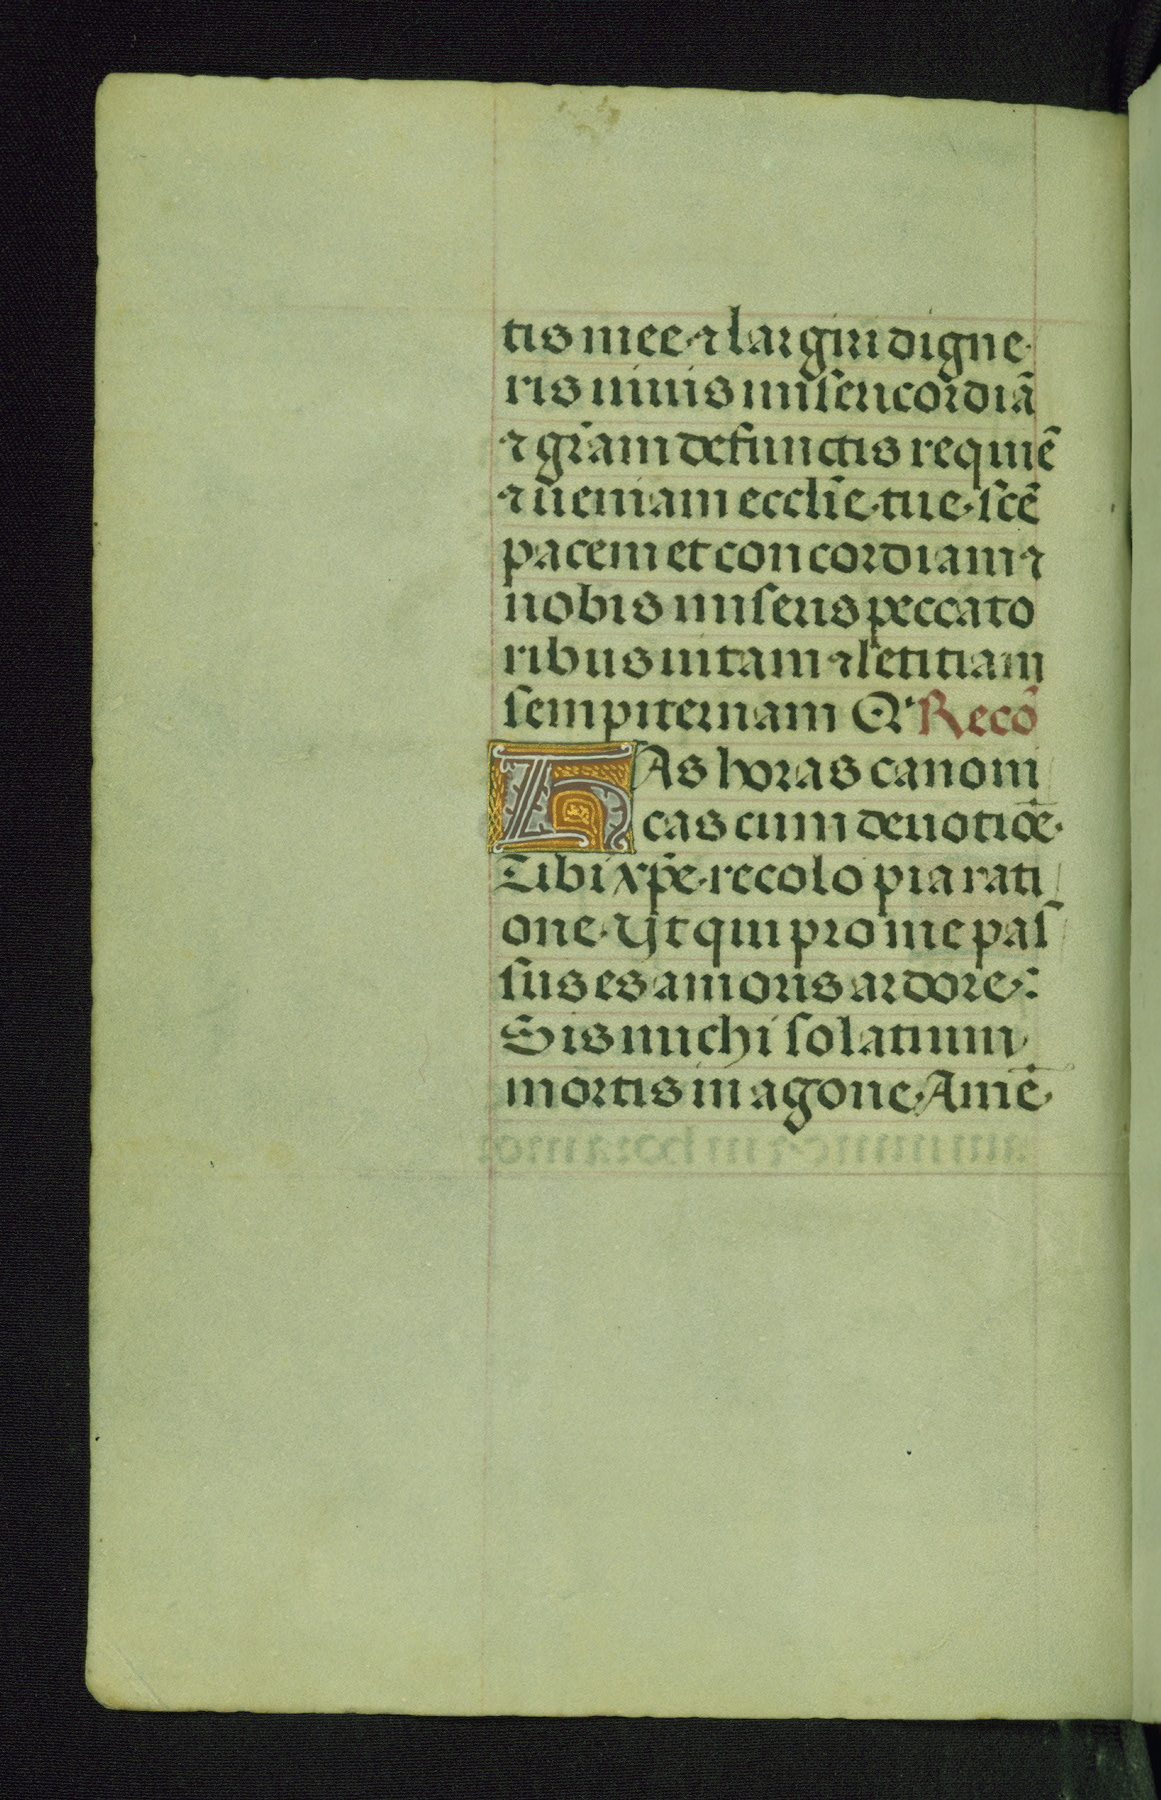 tis mee· ⁊ largiri digne·
ris uiuis misericordiā
⁊ gr̄am defunctis requiē
⁊ ueniam eccl̄ie· tue· sc̄e
pacem et concordiam ⁊
nobis miseris peccato
ribus uitam ⁊ letitiam
sempiternam Q' Recō
HAs horas canoni
cas cum deuotiōe·
Tibi xp̄e· recolo pia rati
one· Vt qui pro me pas
sus es amoris ardore·:
Sis michi solatium
mortis in agone· Amē·